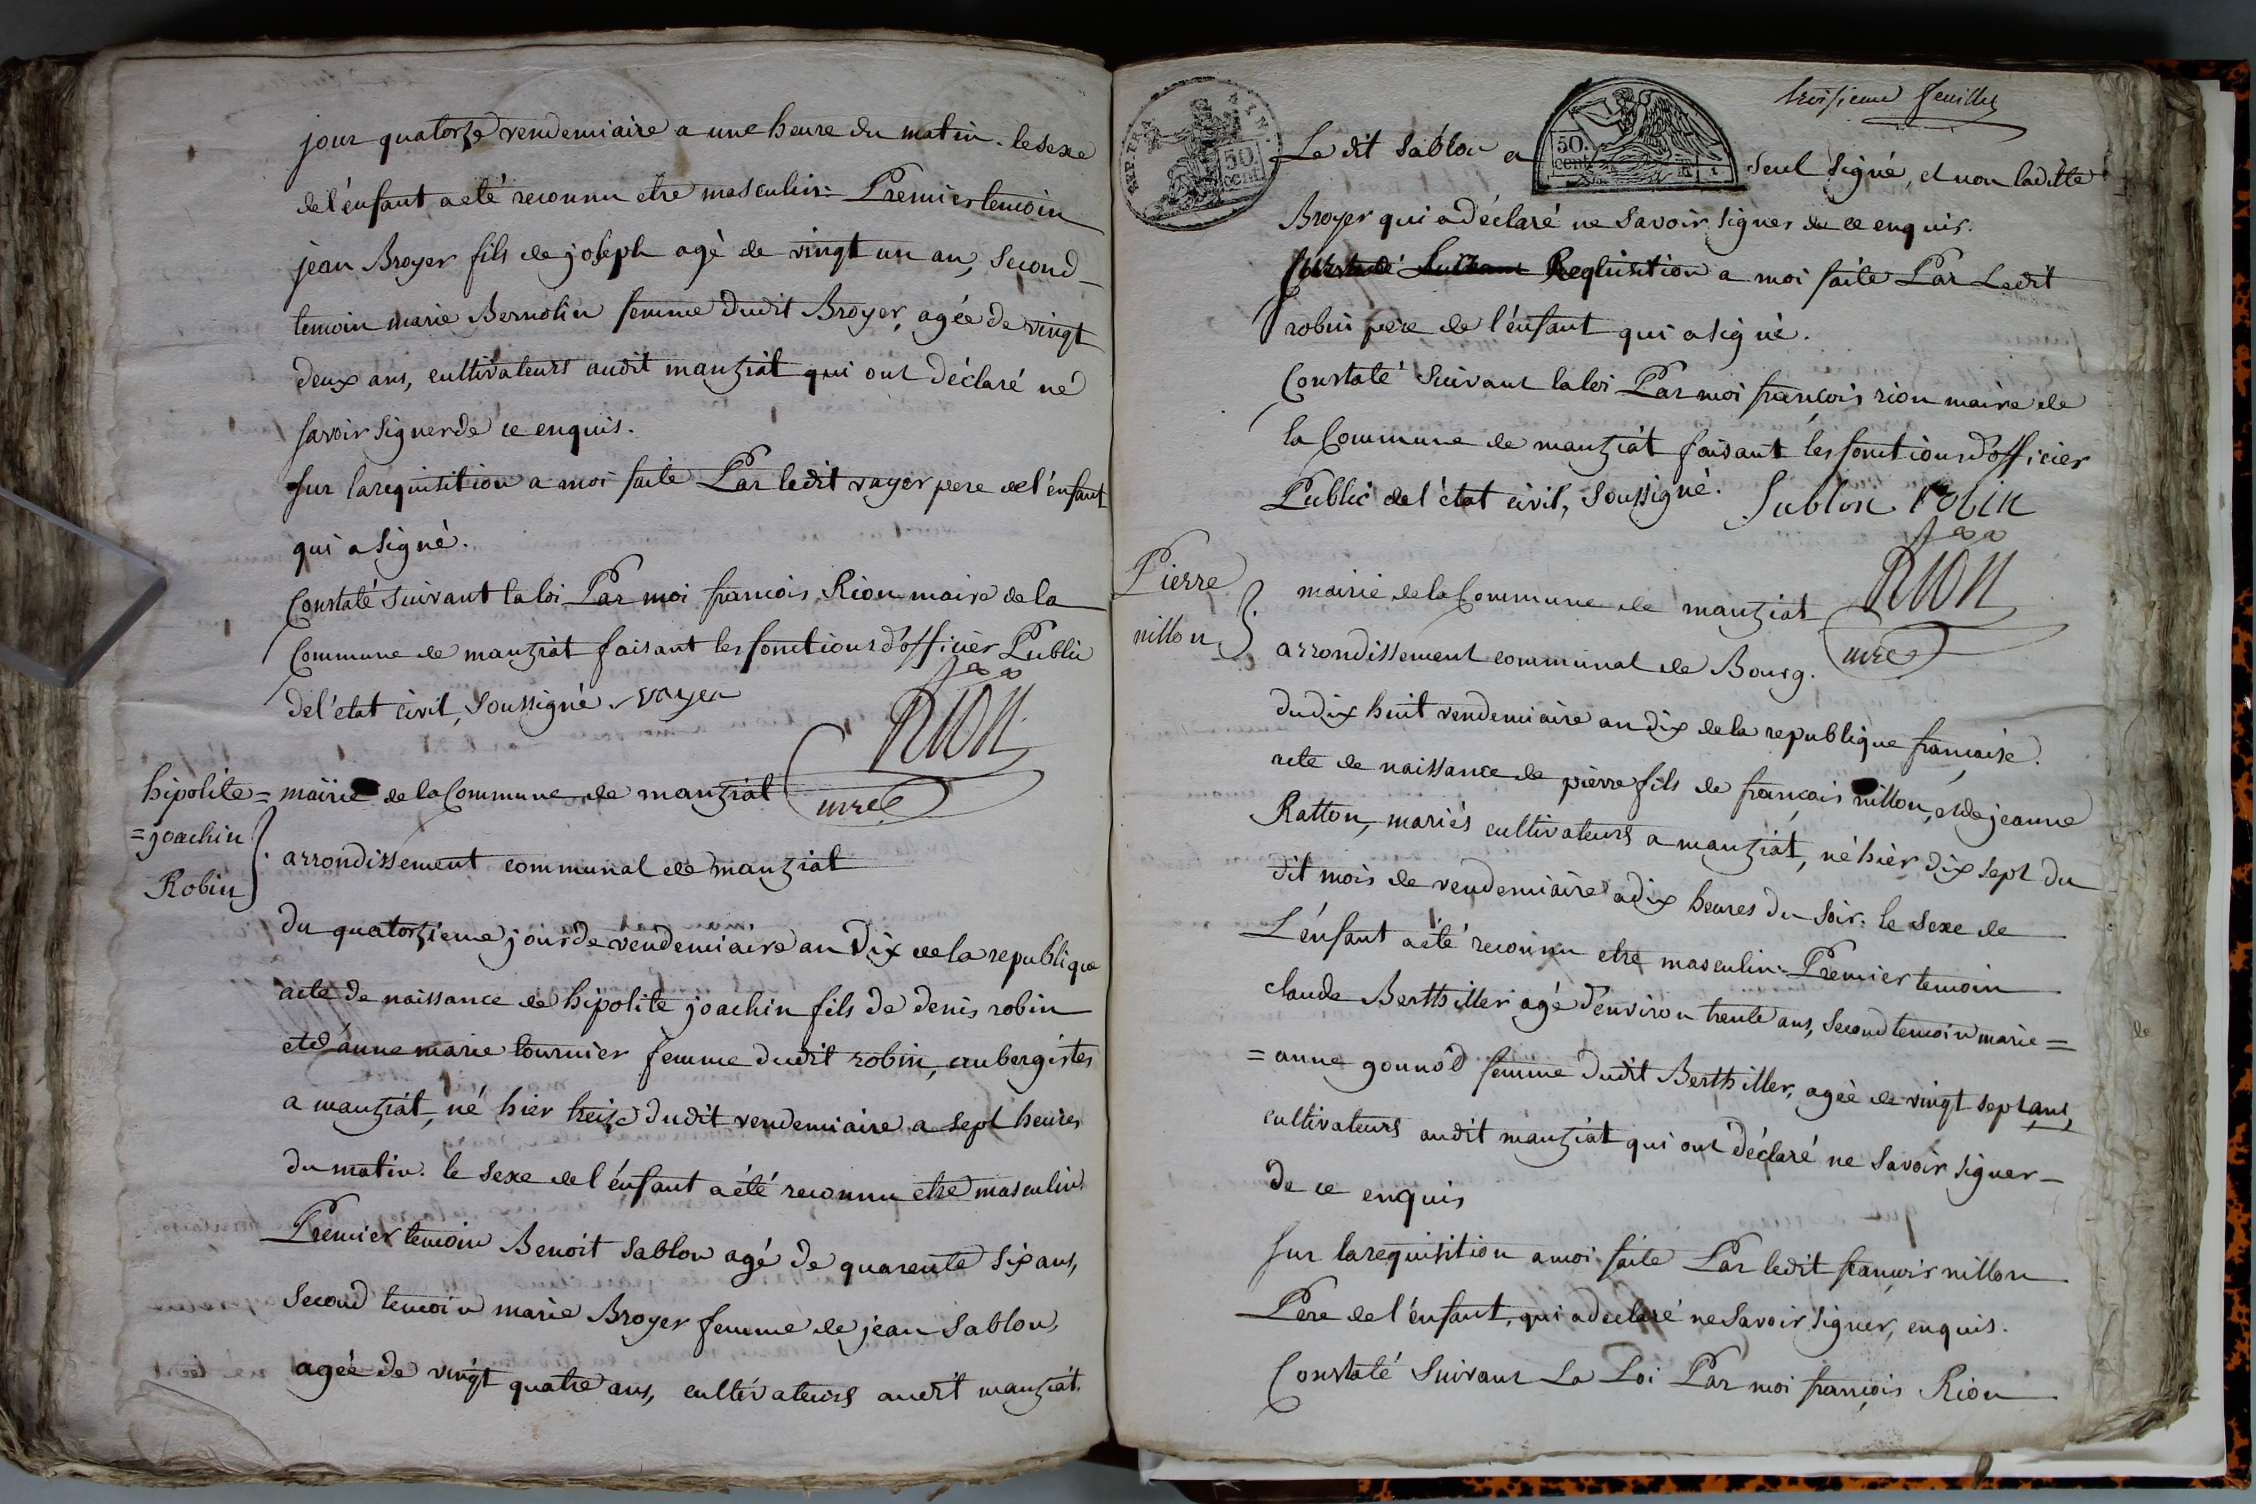 jour quatorze vendemiaire a une heure du matin. le sexe
de l'énfant a eté reconnu etre masculin. Premier temoin
jean Broyer fils de joseph agé de vingt un an, second
temoin marie Bernolin femme dudit Broyer, agée de vingt
deux ans, cultivateurs audit manziat qui ont déclaré né
savoir signer de ce enquis.
sur la requisition a moi faite Par ledit vayer pere de l'énfant
qui a signé.
Constaté suivant la loi Par moi francois Rion maire de la
Commune de manziat faisant les fonctions d'officier Public
de l'état civil, soussigné. vayer
RION
mre
hipolite =
= joachin
Robin
mairie de la Commune de manziat
arrondissement communal de manziat
du quatorzieme jour de vendemiaire an Dix de la republique
acte de naissance de hipolite joachin fils de denis robin
et d'anne marie tournier femme dudit robin, aubergistes
a manziat, né hier treize dudit vendemiaire a sept heures
du matin. le sexe de l'énfant a été reconnu etre masculin.
Premier temoin Benoit sablon agé de quarente six ans,
second temoin marie Broyer femme de jean sablon,
agée de vingt quatre ans, cultivateurs audit manziat.
troisieme feuillet
REP. FRA
50.
cent.
50.
cent
Le dit sablon a seul signé, et non laditte
Broyer qui a déclaré ne savoir signer de ce enquis.
Constaté suivant Requisition a moi faite Par Ledit
robin pere de l'énfant qui a signé.
Constaté suivant la loi Par moi françois rion maire de
la Commune de manziat faisant les fonctions d'officier
Public de l'état civil, soussigné. Sublon robin
RION
mre
Pierre
nillon
mairie de la Commune de manziat
arrondissement communal de Bourg.
du dix huit vendemiaire an dix de la republique francaise.
acte de naissance de pierre fils de françois nillon, et de jeanne
Ratton, mariés cultivateurs a manziat, né hier dix sept du
dit mois de vendemiaire a dix heures du soir. le sexe de
L'énfant a été reconnu etre masculin. Premier temoin
claude Berthiller agé d'environ trente ans, second temoin marie =
= anne gounod femme dudit Berthiller, agée de vingt sept ans,
cultivateurs audit manziat qui ont déclaré ne savoir signer
de ce enquis
sur la requisition a moi faite Par ledit françois nillon
Pere de l'énfant, qui a declaré ne savoir signer, enquis.
Constaté suivant La Loi Par moi françois Rion